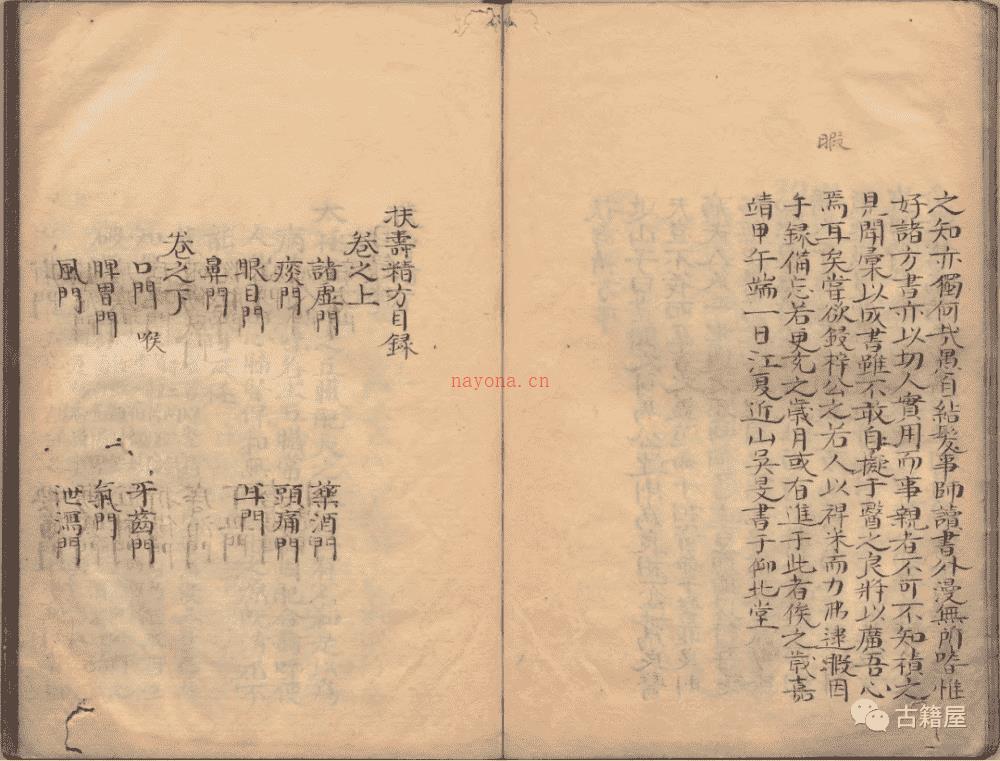 暇
之知亦獨何哉愚自結髮事師讀書外漫無所嗜惟
好諸方書亦以切人實用而事親者不可不知積之
見聞彙以成書雖不敢自擬于醫之良將以廣吾心
焉耳矣嘗欲鋟梓公之若人以裨 而力弗逮暇因
手録備忘若更充之歳月或有進于此者俟之嵗嘉
靖甲午端一日江夏近山吳旻書于仰北堂
扶壽精方目録
卷之上
諸虛門 藥酒門
痰門 頭痛門
眼目門 耳門
鼻門
卷之下
口門 喉 牙齒門
脾胃門 氣門
風門 泄瀉門
nayona.cn
古籍屋